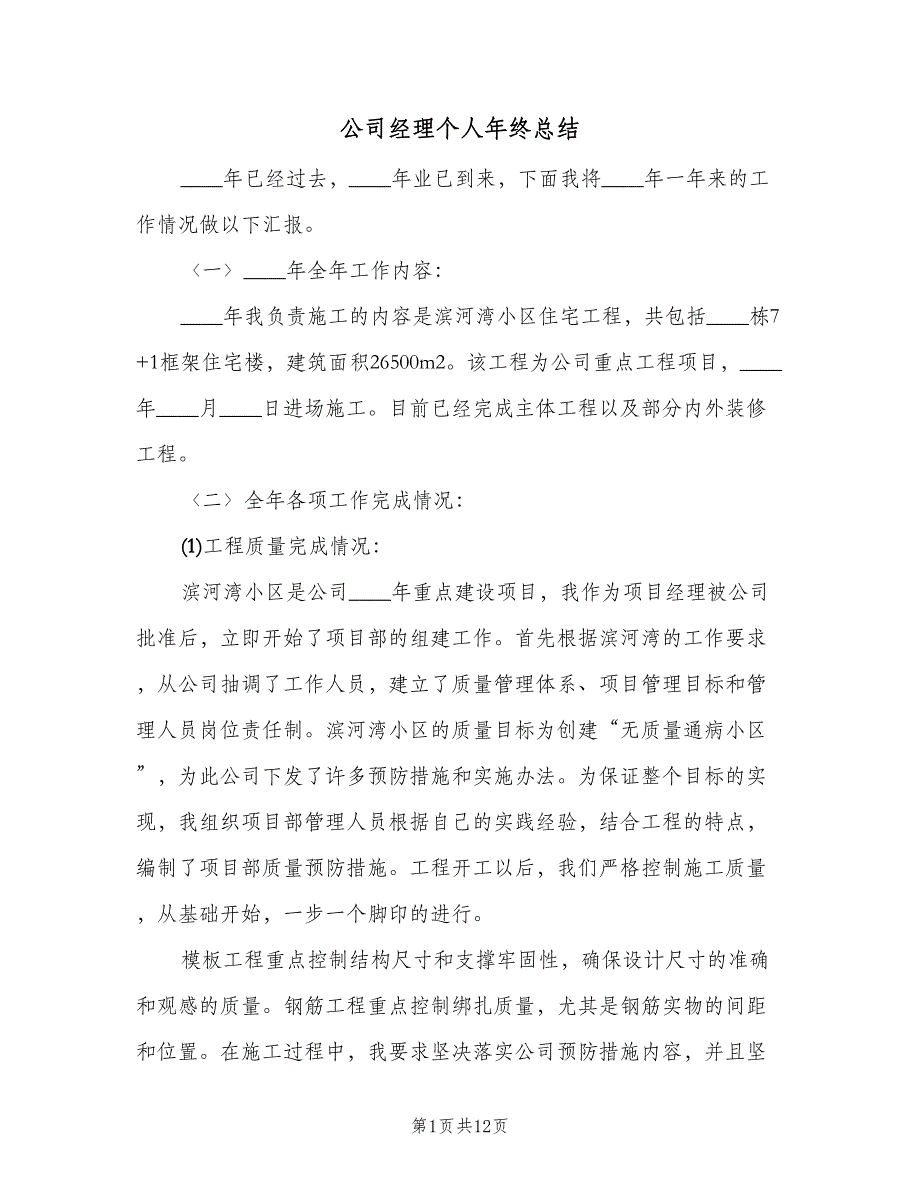 公司经理个人年终总结
____年已经过去，____年业已到来，下面我将____年一年来的工
作情况做以下汇报。
〈一〉____年全年工作内容：
____年我负责施工的内容是滨河湾小区住宅工程，共包括____栋7
+1框架住宅楼，建筑面积26500m2。该工程为公司重点工程项目，____
年____月____日进场施工。目前已经完成主体工程以及部分内外装修
工程。
〈二〉全年各项工作完成情况：
⑴工程质量完成情况：
滨河湾小区是公司____年重点建设项目，我作为项目经理被公司
批准后，立即开始了项目部的组建工作。首先根据滨河湾的工作要求
，从公司抽调了工作人员，建立了质量管理体系、项目管理目标和管
理人员岗位责任制。滨河湾小区的质量目标为创建“无质量通病小区
”，为此公司下发了许多预防措施和实施办法。为保证整个目标的实
现，我组织项目部管理人员根据自己的实践经验，结合工程的特点，
编制了项目部质量预防措施。工程开工以后，我们严格控制施工质量
，从基础开始，一步一个脚印的进行。
模板工程重点控制结构尺寸和支撑牢固性，确保设计尺寸的准确
和观感的质量。钢筋工程重点控制绑扎质量，尤其是钢筋实物的间距
和位置。在施工过程中，我要求坚决落实公司预防措施内容，并且坚
第1页共12页